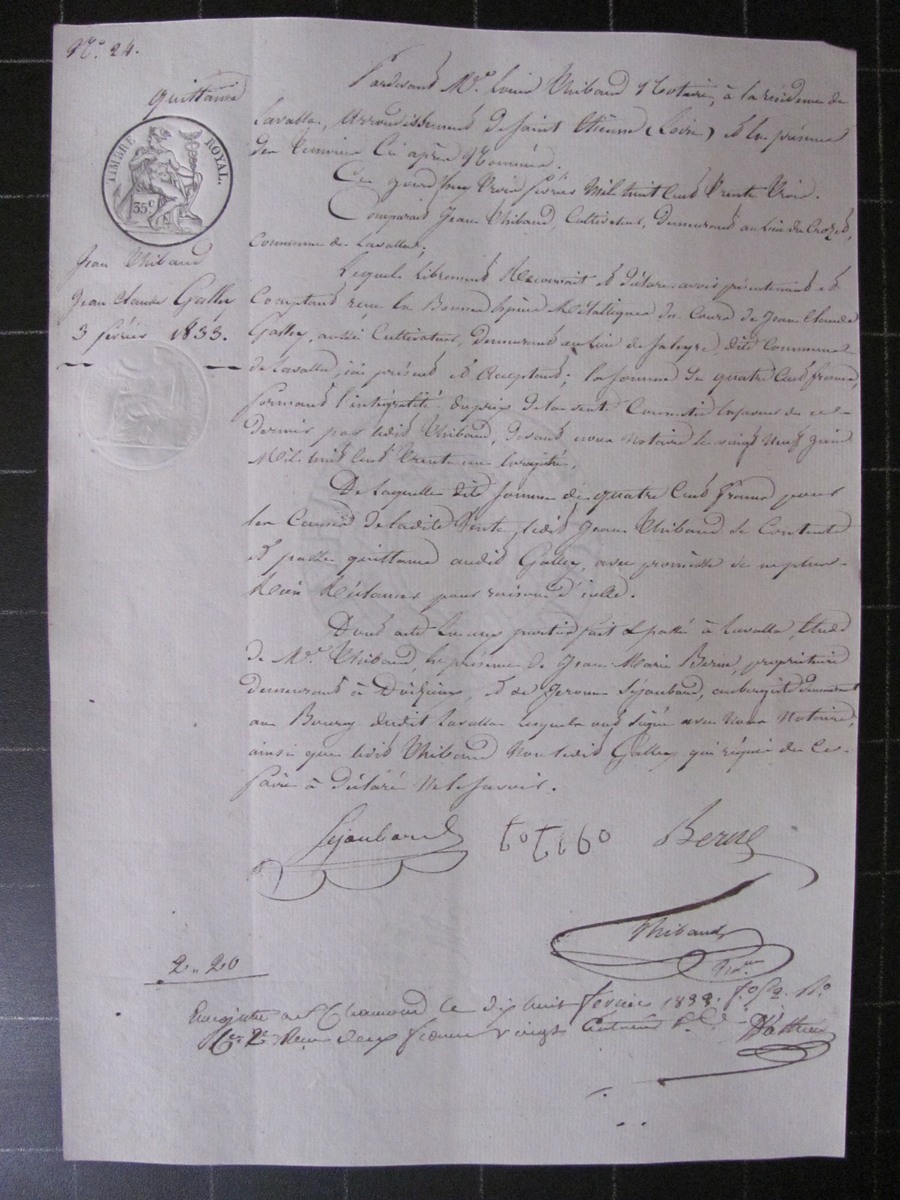 N.° 24.
quittance
TIMBRE ROYAL.
35c
Jean Thibaud
Jean Claude Galley
3 février 1833.
Pardevant M.e Louis Thibaud Notaire, à la résidence de
Lavalla, Arrondissement de Saint Etienne (Loire) Et en présence
des Témoins Ci après Nommés.
Ce jourd'huy Trois février Mil huit Cent Trente Trois.
Comparait Jean Thibaud, Cultivateur, Demeurant au lieu du Crozet,
Commune de Lavalla;
Lequel librement Reconnait et déclare avoir présentement et
Comptant reçu en Bonnes Espèces Métalliques du Cours de Jean Claude
Galley, aussi Cultivateur, Demeurant au lieu de dite Commune
de Lavalla, ici présent et Acceptant; la somme de quatre Cent francs,
formant l'intégralité du prix de la vente Consentie en faveur de ce
dernier par ledit Thibaud, devant nous Notaire le vingt neuf juin
Mil huit Cent trente un Enregistré.
De laquelle dite somme de quatre Cent francs pour
les Causes de ladite Vente, ledit Jean Thibaud se Contente
et passe quittance audit Galley, avec promesse de ne plus
Rien Réclamer pour raison d'icelle.
Dont acte Lu aux parties fait & passé à Lavalla, Etude
de M.e Thibaud, En présence de Jean Marie Berne, propriétaire
demeurant à et de Jerome Sejoubard, aubergiste demeurant
au Bourg dudit Lavalla Lesquels ont signé avec Nous Notaire,
ainsi que ledit Thibaud Non ledit Galley qui requis de Ce
faire à déclaré Ne le savoir.
Sejoubard Berne
Thibaud
2.. 20
Enregistré à St Chamond le dix huit février 1833. f.°
Reçu deux francs vingt Centimes